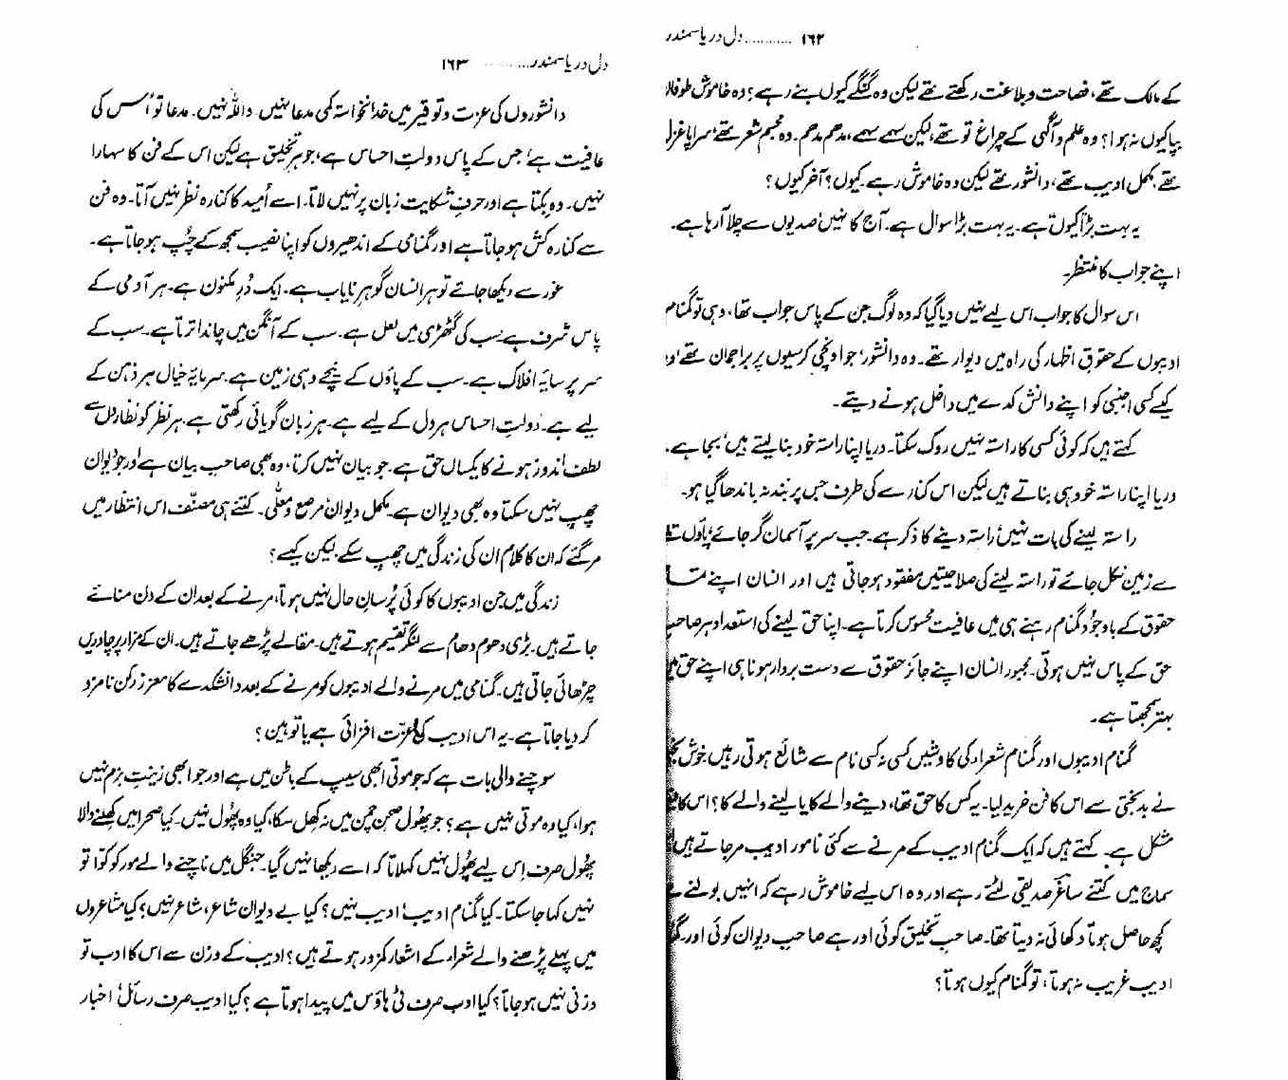 ۱۶۲ ............ دل دریا سمندر
کے مالک تھے، فصاحت و بلاغت رکھتے تھے لیکن وہ گنگے کیوں بنے رہے؟ وہ خاموش طوفان
بپا کیوں نہ ہوا؟ وہ علم و آگہی کے چراغ تو تھے، لیکن سہمے سہمے، مدھم مدھم۔ وہ مجسم شعر تھے، سراپا غزل
تھے، مکمل ادیب تھے، دانشور تھے لیکن وہ خاموش رہے۔ کیوں؟ آخر کیوں؟
یہ بہت بڑا کیوں ہے۔ یہ بہت بڑا سوال ہے۔ آج کا نہیں، صدیوں سے چلا آرہا ہے۔
اپنے جواب کا منتظر۔
اس سوال کا جواب اس لیے نہیں دیا گیا کہ وہ لوگ جن کے پاس جواب تھا، وہی تو گمنام
ادیبوں کے حقوق اظہار کی راہ میں دیوار تھے۔ وہ دانشور، جو اونچی کرسیوں پر براجمان تھے،
کیسے کسی اجنبی کو اپنے دانش کدے میں داخل ہونے دیتے۔
کہتے ہیں کہ کوئی کسی کا راستہ نہیں روک سکتا۔ دریا اپنا راستہ خود بنا لیتے ہیں، بجا ہے۔
دریا اپنا راستہ خود ہی بناتے ہیں لیکن اس کنارے کی طرف جس پر بند نہ باندھا گیا ہو۔
راستہ لینے کی بات نہیں، راستہ دینے کا ذکر ہے۔ جب سر پر آسمان گر جائے، پاؤں تلے
سے زمین نکل جائے تو راستہ لینے کی صلاحیتیں مفقود ہو جاتی ہیں اور انسان اپنے
حقوق کے باوجود گمنام رہنے ہی میں عافیت محسوس کرتا ہے۔ اپنا حق لینے کی استعداد ہر صاحبِ
حق کے پاس نہیں ہوتی۔ مجبور انسان اپنے جائز حقوق سے دست بردار ہونا ہی اپنے حق میں
بہتر سمجھتا ہے۔
گمنام ادیبوں اور گمنام شعراء کی کاوشیں کسی نہ کسی نام سے شائع ہوتی رہیں۔ خوش
نے بدبختی سے اس کا فن خرید لیا۔ یہ کس کا حق تھا، دینے والے کا یا لینے والے کا؟ اس کا
مشکل ہے۔ کہتے ہیں کہ ایک گمنام ادیب کے مرنے سے کئی نامور ادیب مر جاتے ہیں۔
سماج میں کتنے ساغر صدیقی لٹتے رہے اور وہ اس لیے خاموش رہے کہ انہیں بولنے سے
کچھ حاصل ہوتا دکھائی نہ دیتا تھا۔ صاحبِ تخلیق کوئی اور ہے صاحبِ دیوان کوئی اور۔
ادیب غریب نہ ہوتا، تو گمنام کیوں ہوتا؟
دل دریا سمندر ............ ۱۶۳
دانشوروں کی عزت و توقیر میں خدانخواستہ کمی مدعا نہیں واللہ نہیں۔ مدعا تو اُس کی
عافیت ہے، جس کے پاس دولتِ احساس ہے، جوہرِ تخلیق ہے لیکن اس کے فن کا سہارا
نہیں۔ وہ بِکتا ہے اور حرفِ شکایت زبان پر نہیں لاتا۔ اسے اُمید کا کنارہ نظر نہیں آتا۔ وہ فن
سے کنارہ کش ہو جاتا ہے اور گمنامی کے اندھیروں کو اپنا نصیب سمجھ کے چُپ ہو جاتا ہے۔
غور سے دیکھا جائے تو ہر انسان گوہرِ نایاب ہے۔ ایک دُرِ مکنون ہے۔ ہر آدمی کے
پاس شرف ہے، سب کی گٹھڑی میں لعل ہے۔ سب کے آنگن میں چاند اترتا ہے۔ سب کے
سر پر سایۂ افلاک ہے۔ سب کے پاؤں کے نیچے وہی زمین ہے۔ سرمایۂ خیال ہر ذہن کے
لیے ہے۔ دولتِ احساس ہر دل کے لیے ہے۔ ہر زبان گویائی رکھتی ہے۔ ہر نظر کو نظاروں سے
لطف اندوز ہونے کا یکساں حق ہے۔ جو بیان نہیں کرتا، وہ بھی صاحبِ بیان ہے اور جو دیوان
چھپ نہیں سکتا وہ بھی دیوان ہے۔ مکمل دیوان، مرصع و معلّٰی۔ کتنے ہی مصنّف اس انتظار میں
مر گئے کہ ان کا کلام ان کی زندگی میں چھپ سکے، لیکن کیسے؟
زندگی میں جن ادیبوں کا کوئی پُرسانِ حال نہیں ہوتا، مرنے کے بعد ان کے دن منائے
جاتے ہیں۔ بڑی دھوم دھام سے لنگر تقسیم ہوتے ہیں۔ مقالے پڑھے جاتے ہیں۔ ان کے مزار پر چادریں
چڑھائی جاتی ہیں۔ گمنامی میں مرنے والے ادیبوں کو مرنے کے بعد دانشکدے کا معزز رکن نامزد
کر دیا جاتا ہے۔ یہ اس ادیب کی عزّت افزائی ہے یا توہین؟
سوچنے والی بات ہے کہ جو موتی ابھی سیپ کے باطن میں ہے اور جو ابھی زینتِ بزم نہیں
ہوا، کیا وہ موتی نہیں ہے؟ جو پھُول صحنِ چمن میں نہ کھِل سکا، کیا وہ پھُول نہیں۔ کیا صحرا میں کھِلنے والا
پھُول صرف اِس لیے پھُول نہیں کہلاتا کہ اسے دیکھا نہیں گیا۔ جنگل میں ناچنے والے مور کو کوّا تو
نہیں کہا جا سکتا۔ کیا گمنام ادیب، ادیب نہیں؟ کیا بے دیوان شاعر، شاعر نہیں؟ کیا مشاعروں
میں پہلے پڑھنے والے شعراء کے اشعار کمزور ہوتے ہیں؟ ادیب کے وزن سے اس کا ادب تو
وزنی نہیں ہو جاتا؟ کیا ادب صرف ٹی ہاؤس میں پیدا ہوتا ہے؟ کیا ادیب صرف رسائل، اخبار